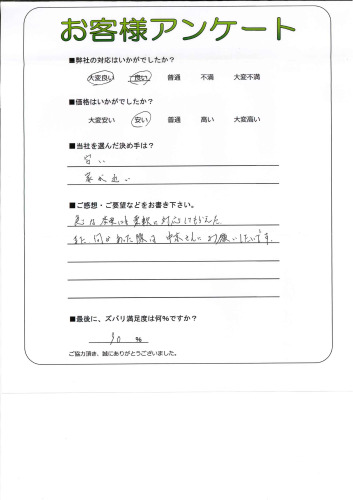 お客様アンケート
■弊社の対応はいかがでしたか？
大変良い 良い 普通 不満 大変不満
■価格はいかがでしたか？
大変安い 安い 普通 高い 大変高い
■当社を選んだ決め手は？
安い
家が近い
■ご感想・ご要望などをお書き下さい。
急な 柔軟に対応してもらえた
また何かあった際は中本さんにお願いしたいです。
■最後に、ズバリ満足度は何%ですか？
90 %
ご協力頂き、誠にありがとうございました。